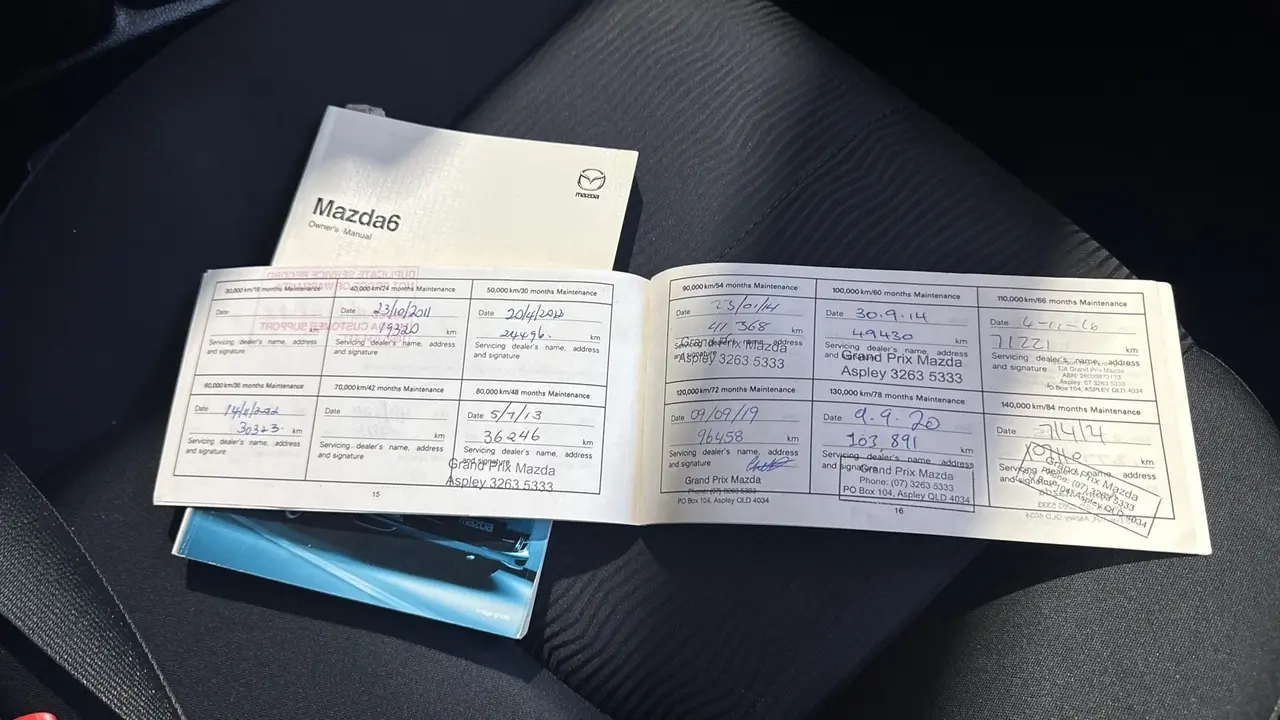 mazda
Mazda6
Owner's Manual
DUPLICATE SERVICE RECORD
30,000 km/18 months Maintenance
Date
km
Servicing dealer's name, address
and signature
40,000 km/24 months Maintenance
Date 23/10/2011
19320 km
Servicing dealer's name, address
and signature
50,000 km/30 months Maintenance
Date 20/4/2012
24496. km
Servicing dealer's name, address
and signature
60,000 km/36 months Maintenance
Date
km
Servicing dealer's name, address
and signature
70,000 km/42 months Maintenance
Date
km
Servicing dealer's name, address
and signature
80,000 km/48 months Maintenance
Date 5/7/13
36246 km
Servicing dealer's name, address
and signature
Grand Prix Mazda
Aspley 3263 5333
15
90,000 km/54 months Maintenance
Date 23/01/14
41 368 km
Servicing dealer's name, address
Grand Prix Mazda
Aspley 3263 5333
100,000 km/60 months Maintenance
Date 30.9.14
49430 km
Servicing dealer's name, address
and signature
Grand Prix Mazda
Aspley 3263 5333
110,000 km/66 months Maintenance
Date
71221 km
Servicing dealer's name, address
and signature
T/A Grand Prix Mazda
Aspley: 07 3263 5333
PO Box 104, ASPLEY QLD 4034
120,000 km/72 months Maintenance
Date 09/09/19
96458 km
Servicing dealer's name, address
and signature
Grand Prix Mazda
Phone: (07) 3263 5333
PO Box 104, Aspley QLD 4034
130,000 km/78 months Maintenance
Date 9.9.20
103 891 km
Servicing dealer's name, address
and signature
Grand Prix Mazda
Phone: (07) 3263 5333
PO Box 104, Aspley QLD 4034
140,000 km/84 months Maintenance
Date
km
Servicing dealer's name, address
and signature
Grand Prix Mazda
16
mazda
Image photo